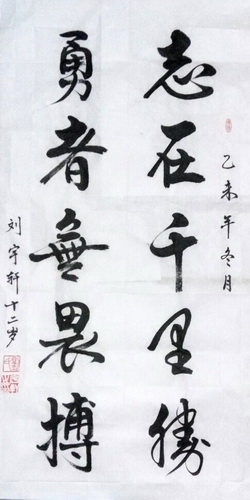 志在千里勝
勇者無畏搏
乙未年冬月
刘宇轩十二岁